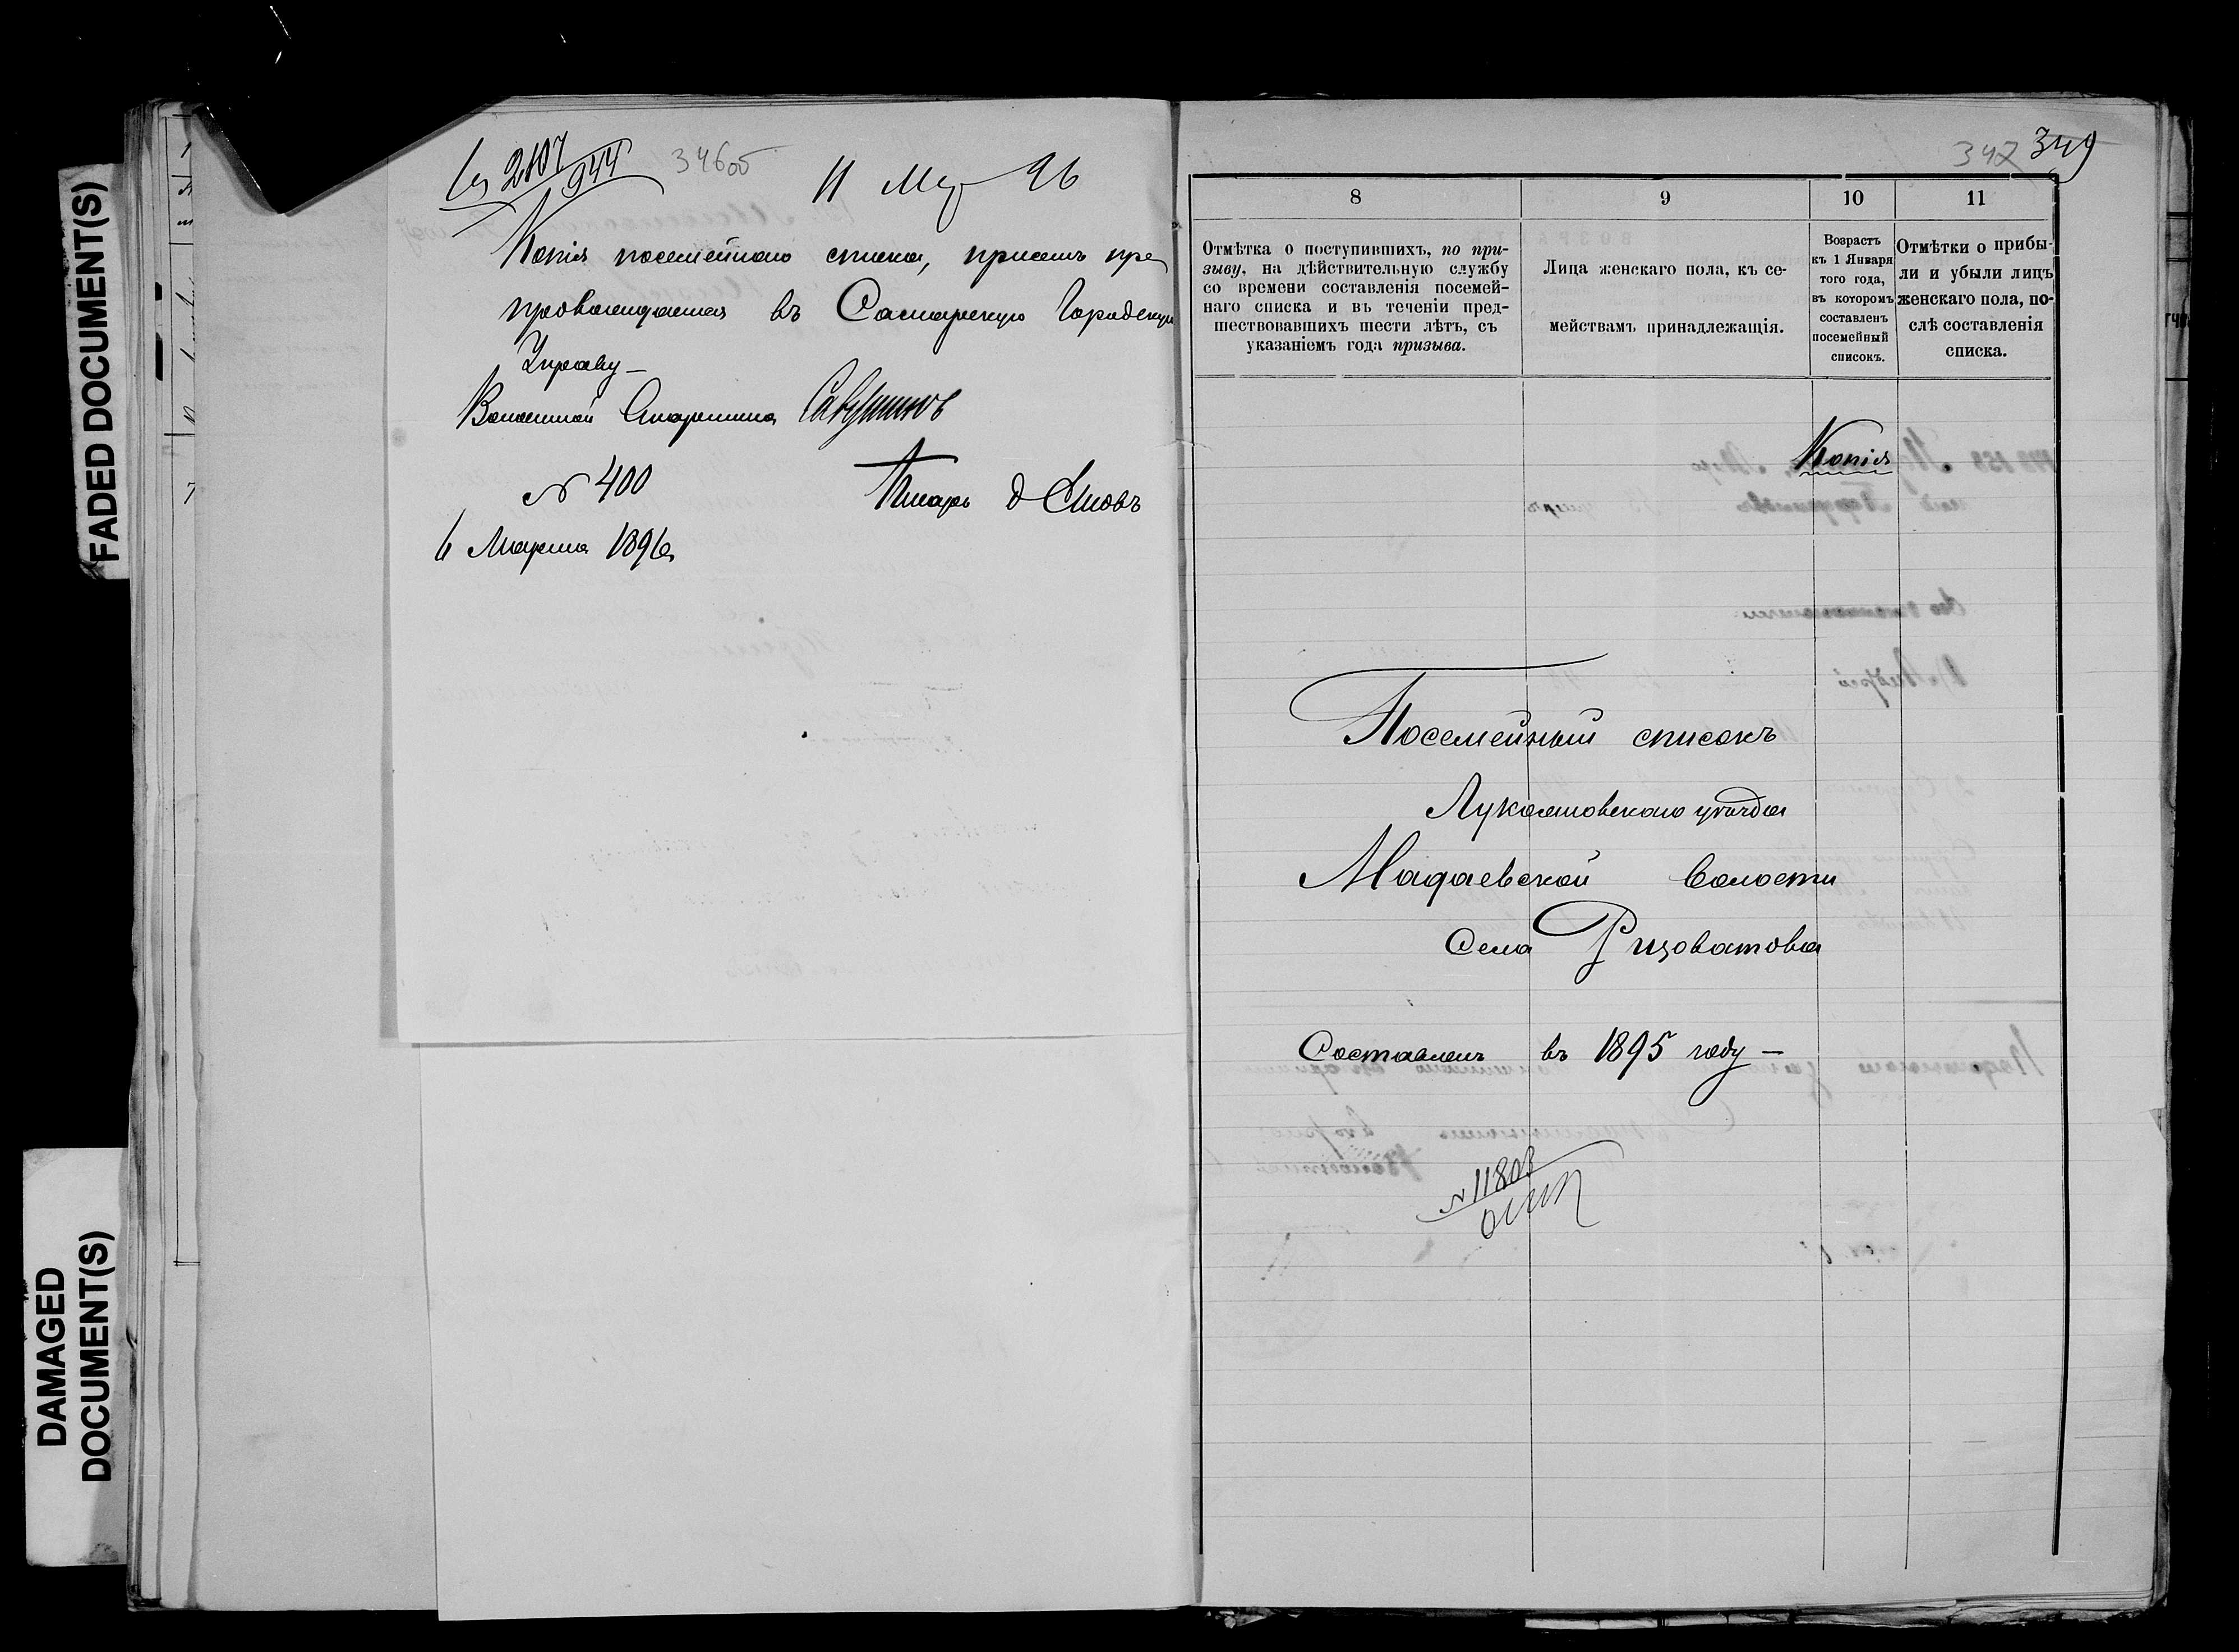 FADED DOCUMENT(S)
DAMAGED
DOCUMENT(S)
346об
11 Мар 96
Копія посемейнаго списка, присемъ пре
провождается въ Самарскую Городскую
Управу
Волостной Старшина
№ 400
Писарь
6 Марта 1896 г.
342 349
8 9 10 11
Отмѣтка о поступившихъ, по при-
зыву, на дѣйствительную службу
со времени составленія посемей-
наго списка и въ теченіи пред-
шествовавшихъ шести лѣтъ, съ
указаніемъ года призыва.
Лица женскаго пола, къ се-
мействамъ принадлежащія.
Возрастъ
къ 1 Января
того года,
въ которомъ
составленъ
посемейный
списокъ.
Отмѣтки о прибы-
ли и убыли лицъ
женскаго пола, по-
слѣ составленія
списка.
Копія
Посемейный списокъ
Лукояновскаго уѣзда
Мадаевской волости
Села Ризоватова
Составленъ въ 1895 году —